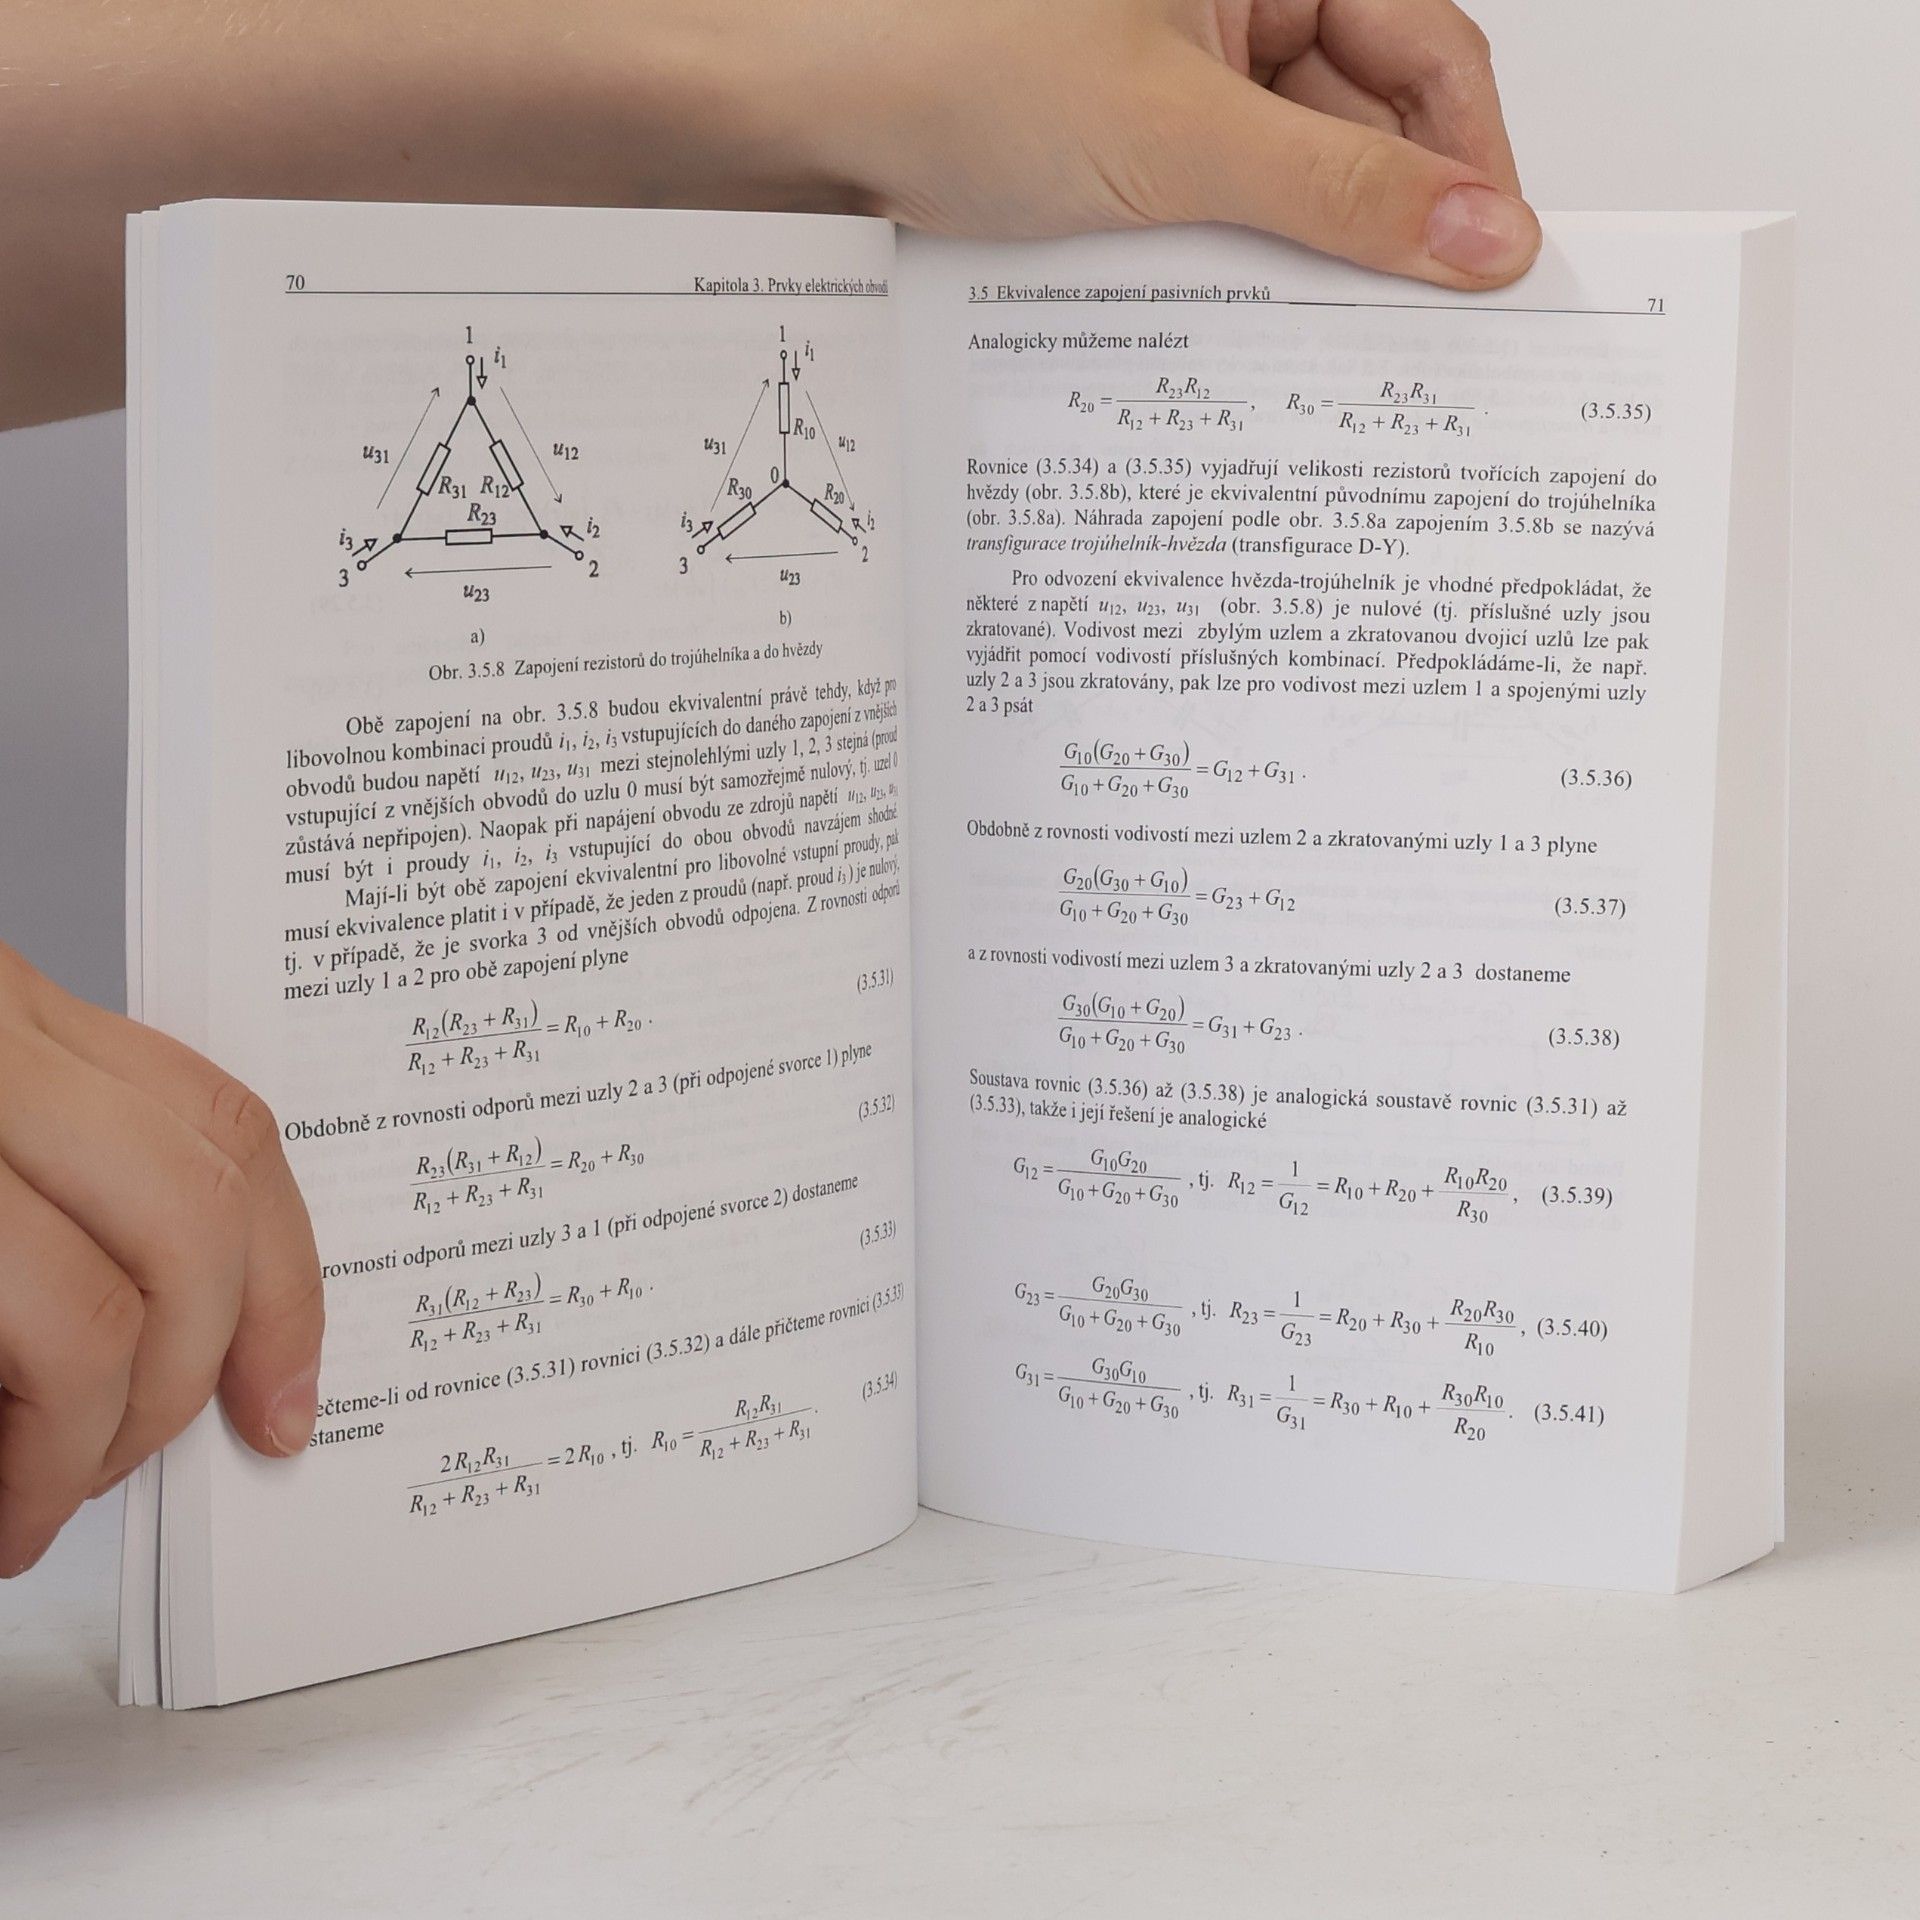 70 Kapitola 3. Prvky elektrických obvodů
1 i₁ u₃₁ u₁₂ R₃₁ R₁₂ R₂₃ i₃ i₂ 3 2 u₂₃
a)
1 i₁ u₃₁ R₁₀ u₁₂ 0 R₃₀ R₂₀ i₃ i₂ 3 2 u₂₃
b)
Obr. 3.5.8 Zapojení rezistorů do trojúhelníka a do hvězdy
Obě zapojení na obr. 3.5.8 budou ekvivalentní právě tehdy, když pro
libovolnou kombinaci proudů i₁, i₂, i₃ vstupujících do daného zapojení z vnějších
obvodů budou napětí u₁₂, u₂₃, u₃₁ mezi stejnolehlými uzly 1, 2, 3 stejná (proud
vstupující z vnějších obvodů do uzlu 0 musí být samozřejmě nulový, tj. uzel 0
zůstává nepřipojen). Naopak při napájení obvodu ze zdrojů napětí u₁₂, u₂₃, u₃₁
musí být i proudy i₁, i₂, i₃ vstupující do obou obvodů navzájem shodné.
Mají-li být obě zapojení ekvivalentní pro libovolné vstupní proudy, pak
musí ekvivalence platit i v případě, že jeden z proudů (např. proud i₃) je nulový,
tj. v případě, že je svorka 3 od vnějších obvodů odpojena. Z rovnosti odporů
mezi uzly 1 a 2 pro obě zapojení plyne
R₁₂(R₂₃ + R₃₁) / (R₁₂ + R₂₃ + R₃₁) = R₁₀ + R₂₀ . (3.5.31)
Obdobně z rovnosti odporů mezi uzly 2 a 3 (při odpojené svorce 1) plyne
R₂₃(R₃₁ + R₁₂) / (R₁₂ + R₂₃ + R₃₁) = R₂₀ + R₃₀ (3.5.32)
rovnosti odporů mezi uzly 3 a 1 (při odpojené svorce 2) dostaneme
R₃₁(R₁₂ + R₂₃) / (R₁₂ + R₂₃ + R₃₁) = R₃₀ + R₁₀ . (3.5.33)
ečteme-li od rovnice (3.5.31) rovnici (3.5.32) a dále přičteme rovnici (3.5.33)
staneme
2R₁₂R₃₁ / (R₁₂ + R₂₃ + R₃₁) = 2R₁₀ , tj. R₁₀ = R₁₂R₃₁ / (R₁₂ + R₂₃ + R₃₁) . (3.5.34)
3.5 Ekvivalence zapojení pasivních prvků 71
Analogicky můžeme nalézt
R₂₀ = R₂₃R₁₂ / (R₁₂ + R₂₃ + R₃₁) , R₃₀ = R₂₃R₃₁ / (R₁₂ + R₂₃ + R₃₁) . (3.5.35)
Rovnice (3.5.34) a (3.5.35) vyjadřují velikosti rezistorů tvořících zapojení do
hvězdy (obr. 3.5.8b), které je ekvivalentní původnímu zapojení do trojúhelníka
(obr. 3.5.8a). Náhrada zapojení podle obr. 3.5.8a zapojením 3.5.8b se nazývá
transfigurace trojúhelník-hvězda (transfigurace D-Y).
Pro odvození ekvivalence hvězda-trojúhelník je vhodné předpokládat, že
některé z napětí u₁₂, u₂₃, u₃₁ (obr. 3.5.8) je nulové (tj. příslušné uzly jsou
zkratované). Vodivost mezi zbylým uzlem a zkratovanou dvojicí uzlů lze pak
vyjádřit pomocí vodivostí příslušných kombinací. Předpokládáme-li, že např.
uzly 2 a 3 jsou zkratovány, pak lze pro vodivost mezi uzlem 1 a spojenými uzly
2 a 3 psát
G₁₀(G₂₀ + G₃₀) / (G₁₀ + G₂₀ + G₃₀) = G₁₂ + G₃₁ . (3.5.36)
Obdobně z rovnosti vodivostí mezi uzlem 2 a zkratovanými uzly 1 a 3 plyne
G₂₀(G₃₀ + G₁₀) / (G₁₀ + G₂₀ + G₃₀) = G₂₃ + G₁₂ (3.5.37)
a z rovnosti vodivostí mezi uzlem 3 a zkratovanými uzly 2 a 3 dostaneme
G₃₀(G₁₀ + G₂₀) / (G₁₀ + G₂₀ + G₃₀) = G₃₁ + G₂₃ . (3.5.38)
Soustava rovnic (3.5.36) až (3.5.38) je analogická soustavě rovnic (3.5.31) až
(3.5.33), takže i její řešení je analogické
G₁₂ = G₁₀G₂₀ / (G₁₀ + G₂₀ + G₃₀) , tj. R₁₂ = 1 / G₁₂ = R₁₀ + R₂₀ + R₁₀R₂₀ / R₃₀ , (3.5.39)
G₂₃ = G₂₀G₃₀ / (G₁₀ + G₂₀ + G₃₀) , tj. R₂₃ = 1 / G₂₃ = R₂₀ + R₃₀ + R₂₀R₃₀ / R₁₀ , (3.5.40)
G₃₁ = G₃₀G₁₀ / (G₁₀ + G₂₀ + G₃₀) , tj. R₃₁ = 1 / G₃₁ = R₃₀ + R₁₀ + R₃₀R₁₀ / R₂₀ . (3.5.41)